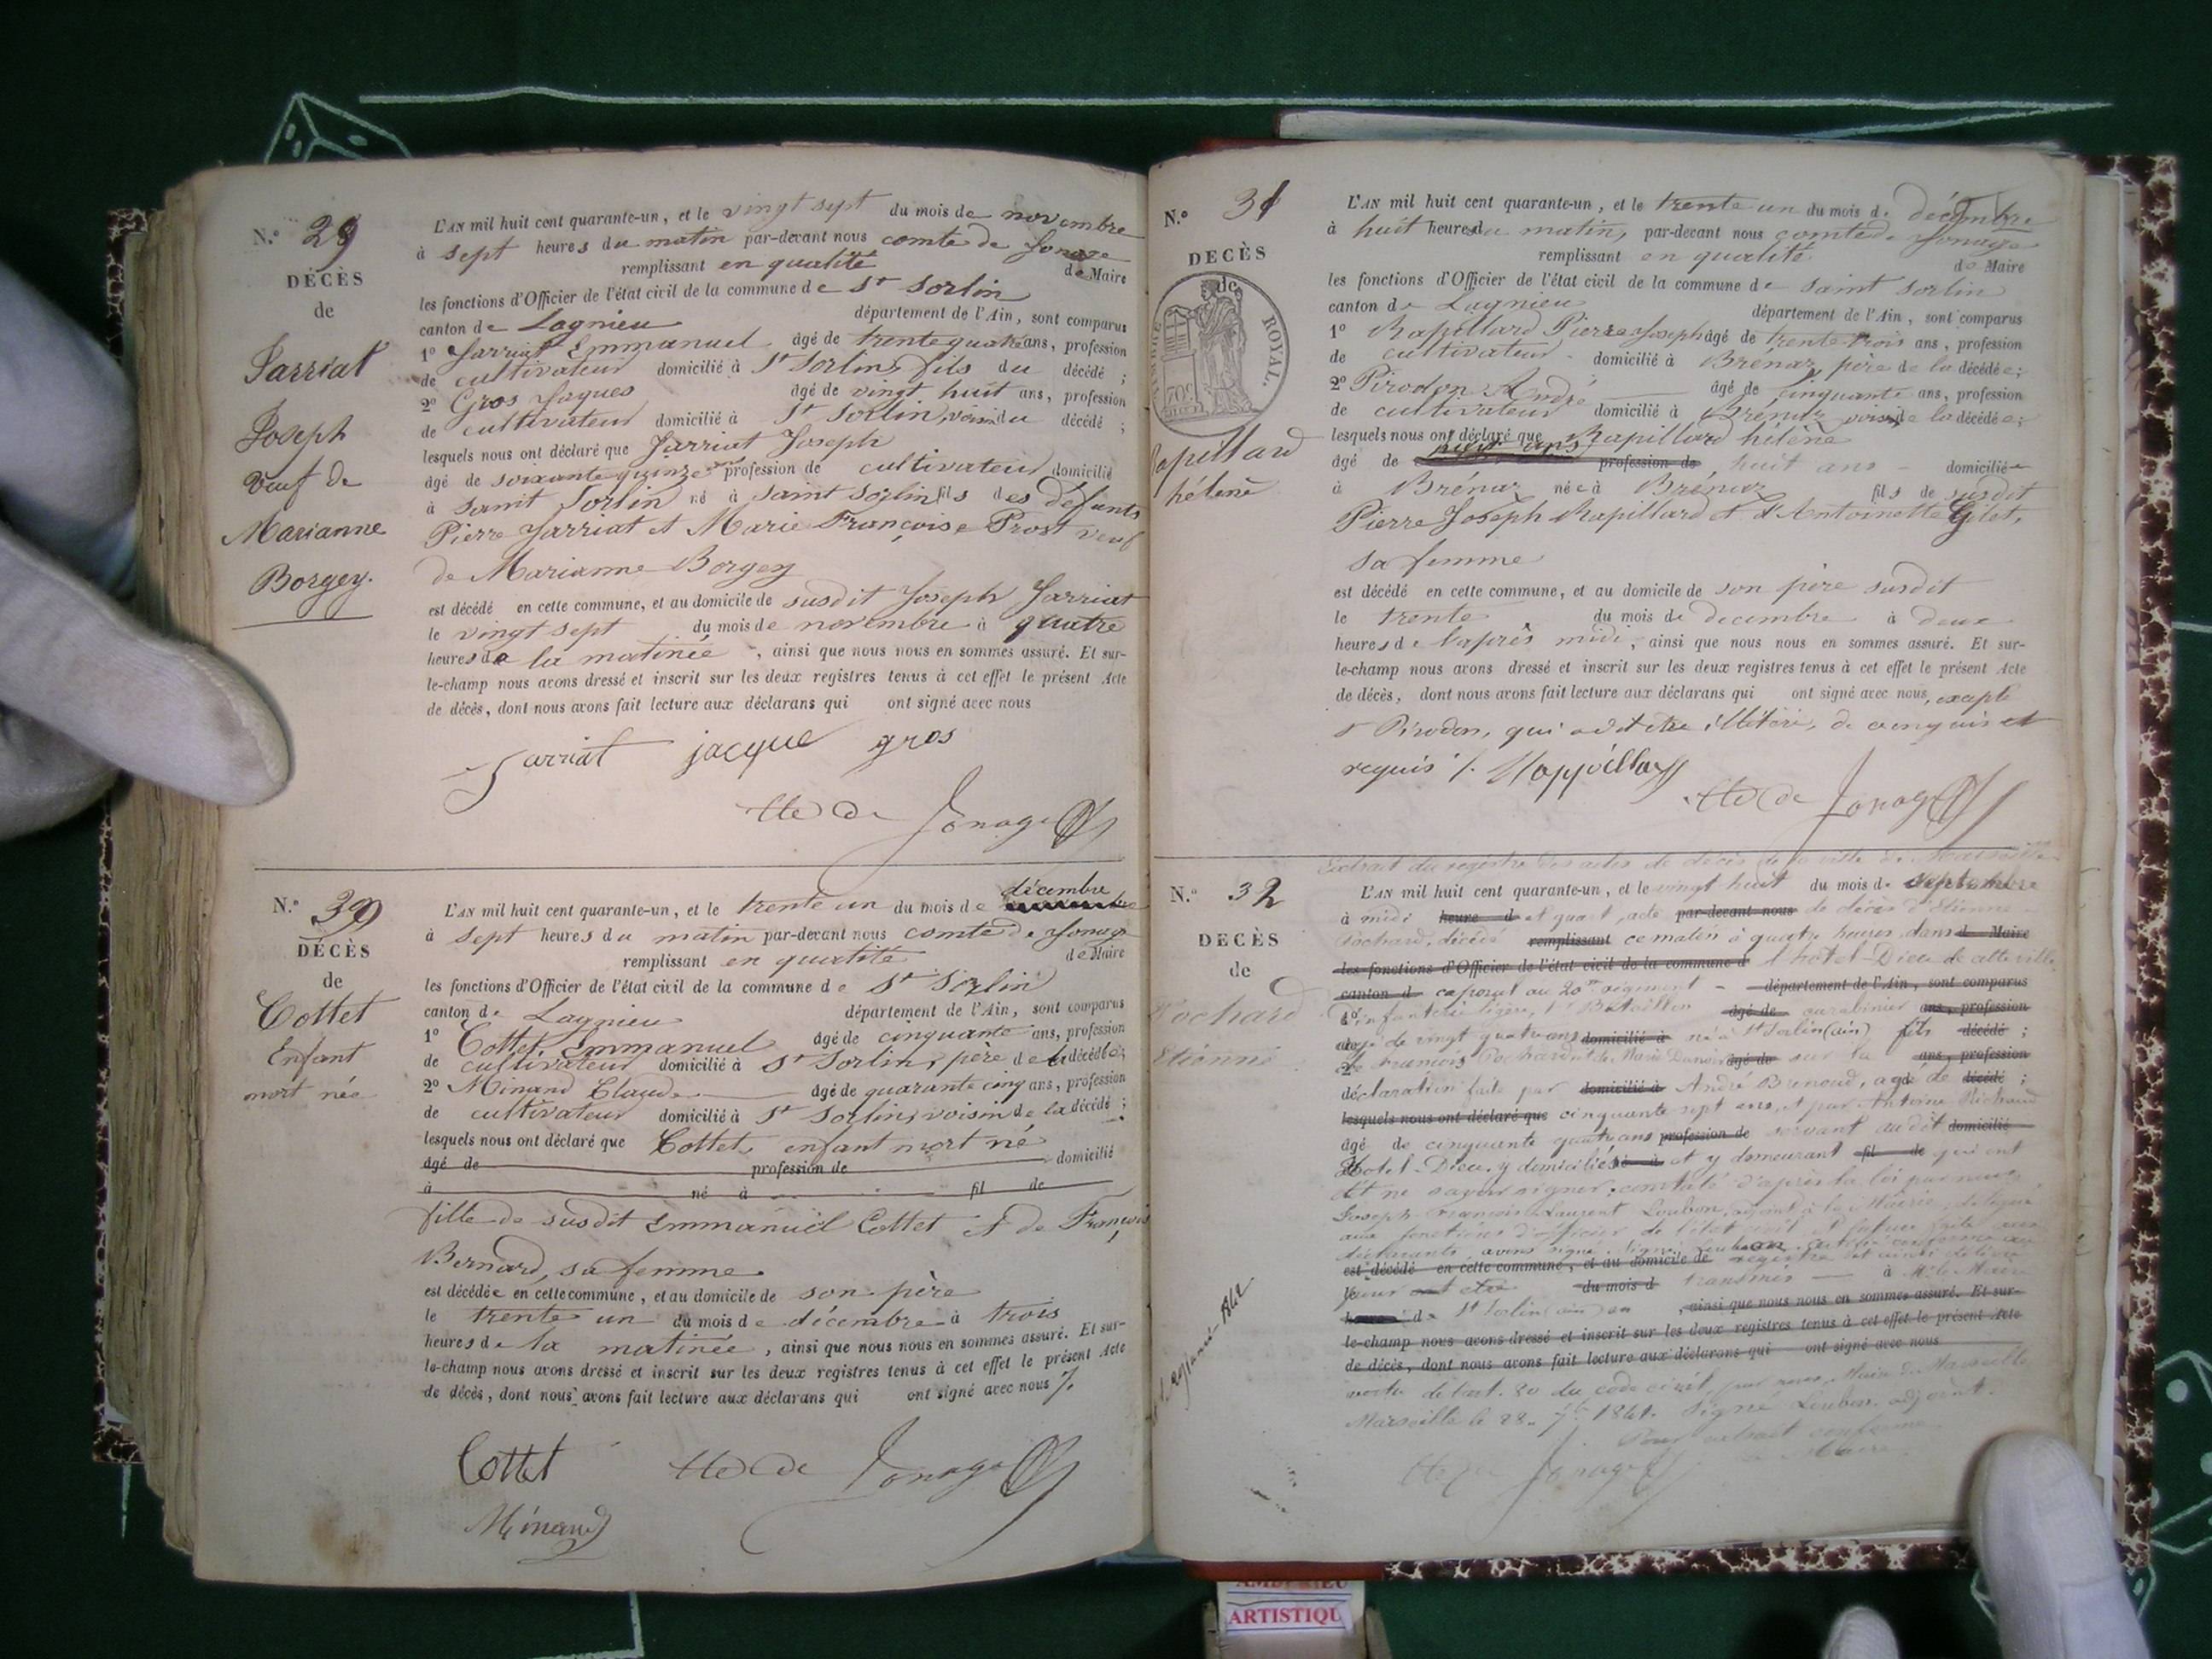 N.º 29
DÉCÈS
de
Jarriat
Joseph
veuf de
Marianne
Borgey.
L'AN mil huit cent quarante-un, et le vingt sept du mois de novembre
à sept heures du matin par-devant nous comte de Jonage
remplissant en qualité de Maire
les fonctions d'Officier de l'état civil de la commune de St Sorlin
canton de Lagnieu département de l'Ain, sont comparus
1º Jarriat Emmanuel âgé de trente quatre ans, profession
de cultivateur domicilié à St Sorlin, fils du décédé ;
2º Gros Jaques âgé de vingt huit ans, profession
de cultivateur domicilié à St Sorlin, voisin du décédé ;
lesquels nous ont déclaré que Jarriat Joseph
âgé de soixante quinze ans profession de cultivateur domicilié
à saint Sorlin né à saint Sorlin fils des défunts
Pierre Jarriat et Marie Françoise Prost veuf
de Marianne Borgey
est décédé en cette commune, et au domicile de susdit Joseph Jarriat
le vingt sept du mois de novembre à quatre
heures de la matinée, ainsi que nous nous en sommes assuré. Et sur-
le-champ nous avons dressé et inscrit sur les deux registres tenus à cet effet le présent Acte
de décès, dont nous avons fait lecture aux déclarans qui ont signé avec nous
Jarriat jacque gros
Cte de Jonage
N.º 30
DÉCÈS
de
Cottet
Enfant
mort née
L'AN mil huit cent quarante-un, et le trente un du mois de décembre
à sept heures du matin par-devant nous comte de Jonage
remplissant en qualité de Maire
les fonctions d'Officier de l'état civil de la commune de St Sorlin
canton de Lagnieu département de l'Ain, sont comparus
1º Cottet Emmanuel âgé de cinquante ans, profession
de cultivateur domicilié à St Sorlin, père de la décédée;
2º Minand Claude âgé de quarante cinq ans, profession
de cultivateur domicilié à St Sorlin, voisin de la décédé ;
lesquels nous ont déclaré que Cottet, enfant mort né
âgé de profession de domicilié
à né à fil de
fille de susdit Emmanuel Cottet et de
Bernard, sa femme
est décédée en cette commune, et au domicile de son père
le trente un du mois de décembre à trois
heures de la matinée, ainsi que nous nous en sommes assuré. Et sur-
le-champ nous avons dressé et inscrit sur les deux registres tenus à cet effet le présent Acte
de décès, dont nous avons fait lecture aux déclarans qui ont signé avec nous
Cottet Cte de Jonage
Minand
N.º 31
DÉCÈS
de
TIMBRE ROYAL.
70c
Rapillard
hélène
L'AN mil huit cent quarante-un, et le trente un du mois de décembre
à huit heures du matin, par-devant nous comte de Jonage
remplissant en qualité de Maire
les fonctions d'Officier de l'état civil de la commune de saint Sorlin
canton de Lagnieu département de l'Ain, sont comparus
1º Rapillard Pierre Joseph âgé de trente trois ans, profession
de cultivateur domicilié à Brénaz, père de la décédée;
2º Pirodon André âgé de cinquante ans, profession
de cultivateur domicilié à Brénaz, voisin de la décédée;
lesquels nous ont déclaré que Rapillard hélène
âgé de profession de huit ans domiciliée
à Brénaz née à Brénaz fils de susdit
Pierre Joseph Rapillard et d'Antoinette Gilet,
sa femme
est décédé en cette commune, et au domicile de son père susdit
le trente du mois de decembre à deux
heures de l'après midi, ainsi que nous nous en sommes assuré. Et sur-
le-champ nous avons dressé et inscrit sur les deux registres tenus à cet effet le présent Acte
de décès, dont nous avons fait lecture aux déclarans qui ont signé avec nous, excepté
Pirodon, qui a dit être illitéré, de ce enquis et
requis
Cte de Jonage
N.º 32
DÉCÈS
de
Rochard
Etienne
Extrait du registre des actes de décès de la ville de Marseille
L'AN mil huit cent quarante-un, et le vingt huit du mois de septembre
à midi heure d et quart, acte par-devant nous de décès d'Etienne
Rochard, décédé remplissant ce matin à quatre heures dans d Maire
les fonctions d'Officier de l'état civil de la commune d l'hôtel-Dieu de cette ville,
canton d caporal au 20me régiment département de l'Ain, sont comparus
1º d'infanterie légère, 1er Bataillon âgé de carabinier ans, profession
âgé de vingt quatre ans domicilié à né à St Sorlin (ain) fils décédé ;
2º de François Rochard et de Marie âgé de sur la ans, profession
déclaration faite par domicilié à André Brunoud, agé de décédé ;
lesquels nous ont déclaré que cinquante sept ans, et par Antoine Richaud
âgé de cinquante quatre ans profession de servant au dit domicilié
Hotel-Dieu, y domiciliés à et y demeurant fil de qui ont
dit ne savoir signer; constaté d'après la loi par nous
Joseph François Laurent Loubon, adjoint à la Mairie, délégué
aux fonctions d'officier de l'état civil et lecture faite aux
déclarants avons signé. Signé Loubon certifié conforme au
est décédé en cette commune, et au domicile de registre
pour être du mois d transmis à Mr le Maire
heure de St Sorlin (ain) en, ainsi que nous nous en sommes assuré. Et sur-
le-champ nous avons dressé et inscrit sur les deux registres tenus à cet effet le présent Acte
de décès, dont nous avons fait lecture aux déclarans qui ont signé avec nous
vertu de l'art. 80 du code civil, par nous, Maire de Marseille
Marseille le 28 7bre 1841. Signé Loubon adjoint.
Pour extrait conforme
Le Maire
Cte de Jonage
1842
ARTISTIQU